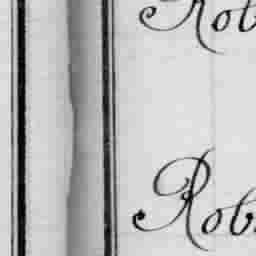 Rob
Rob